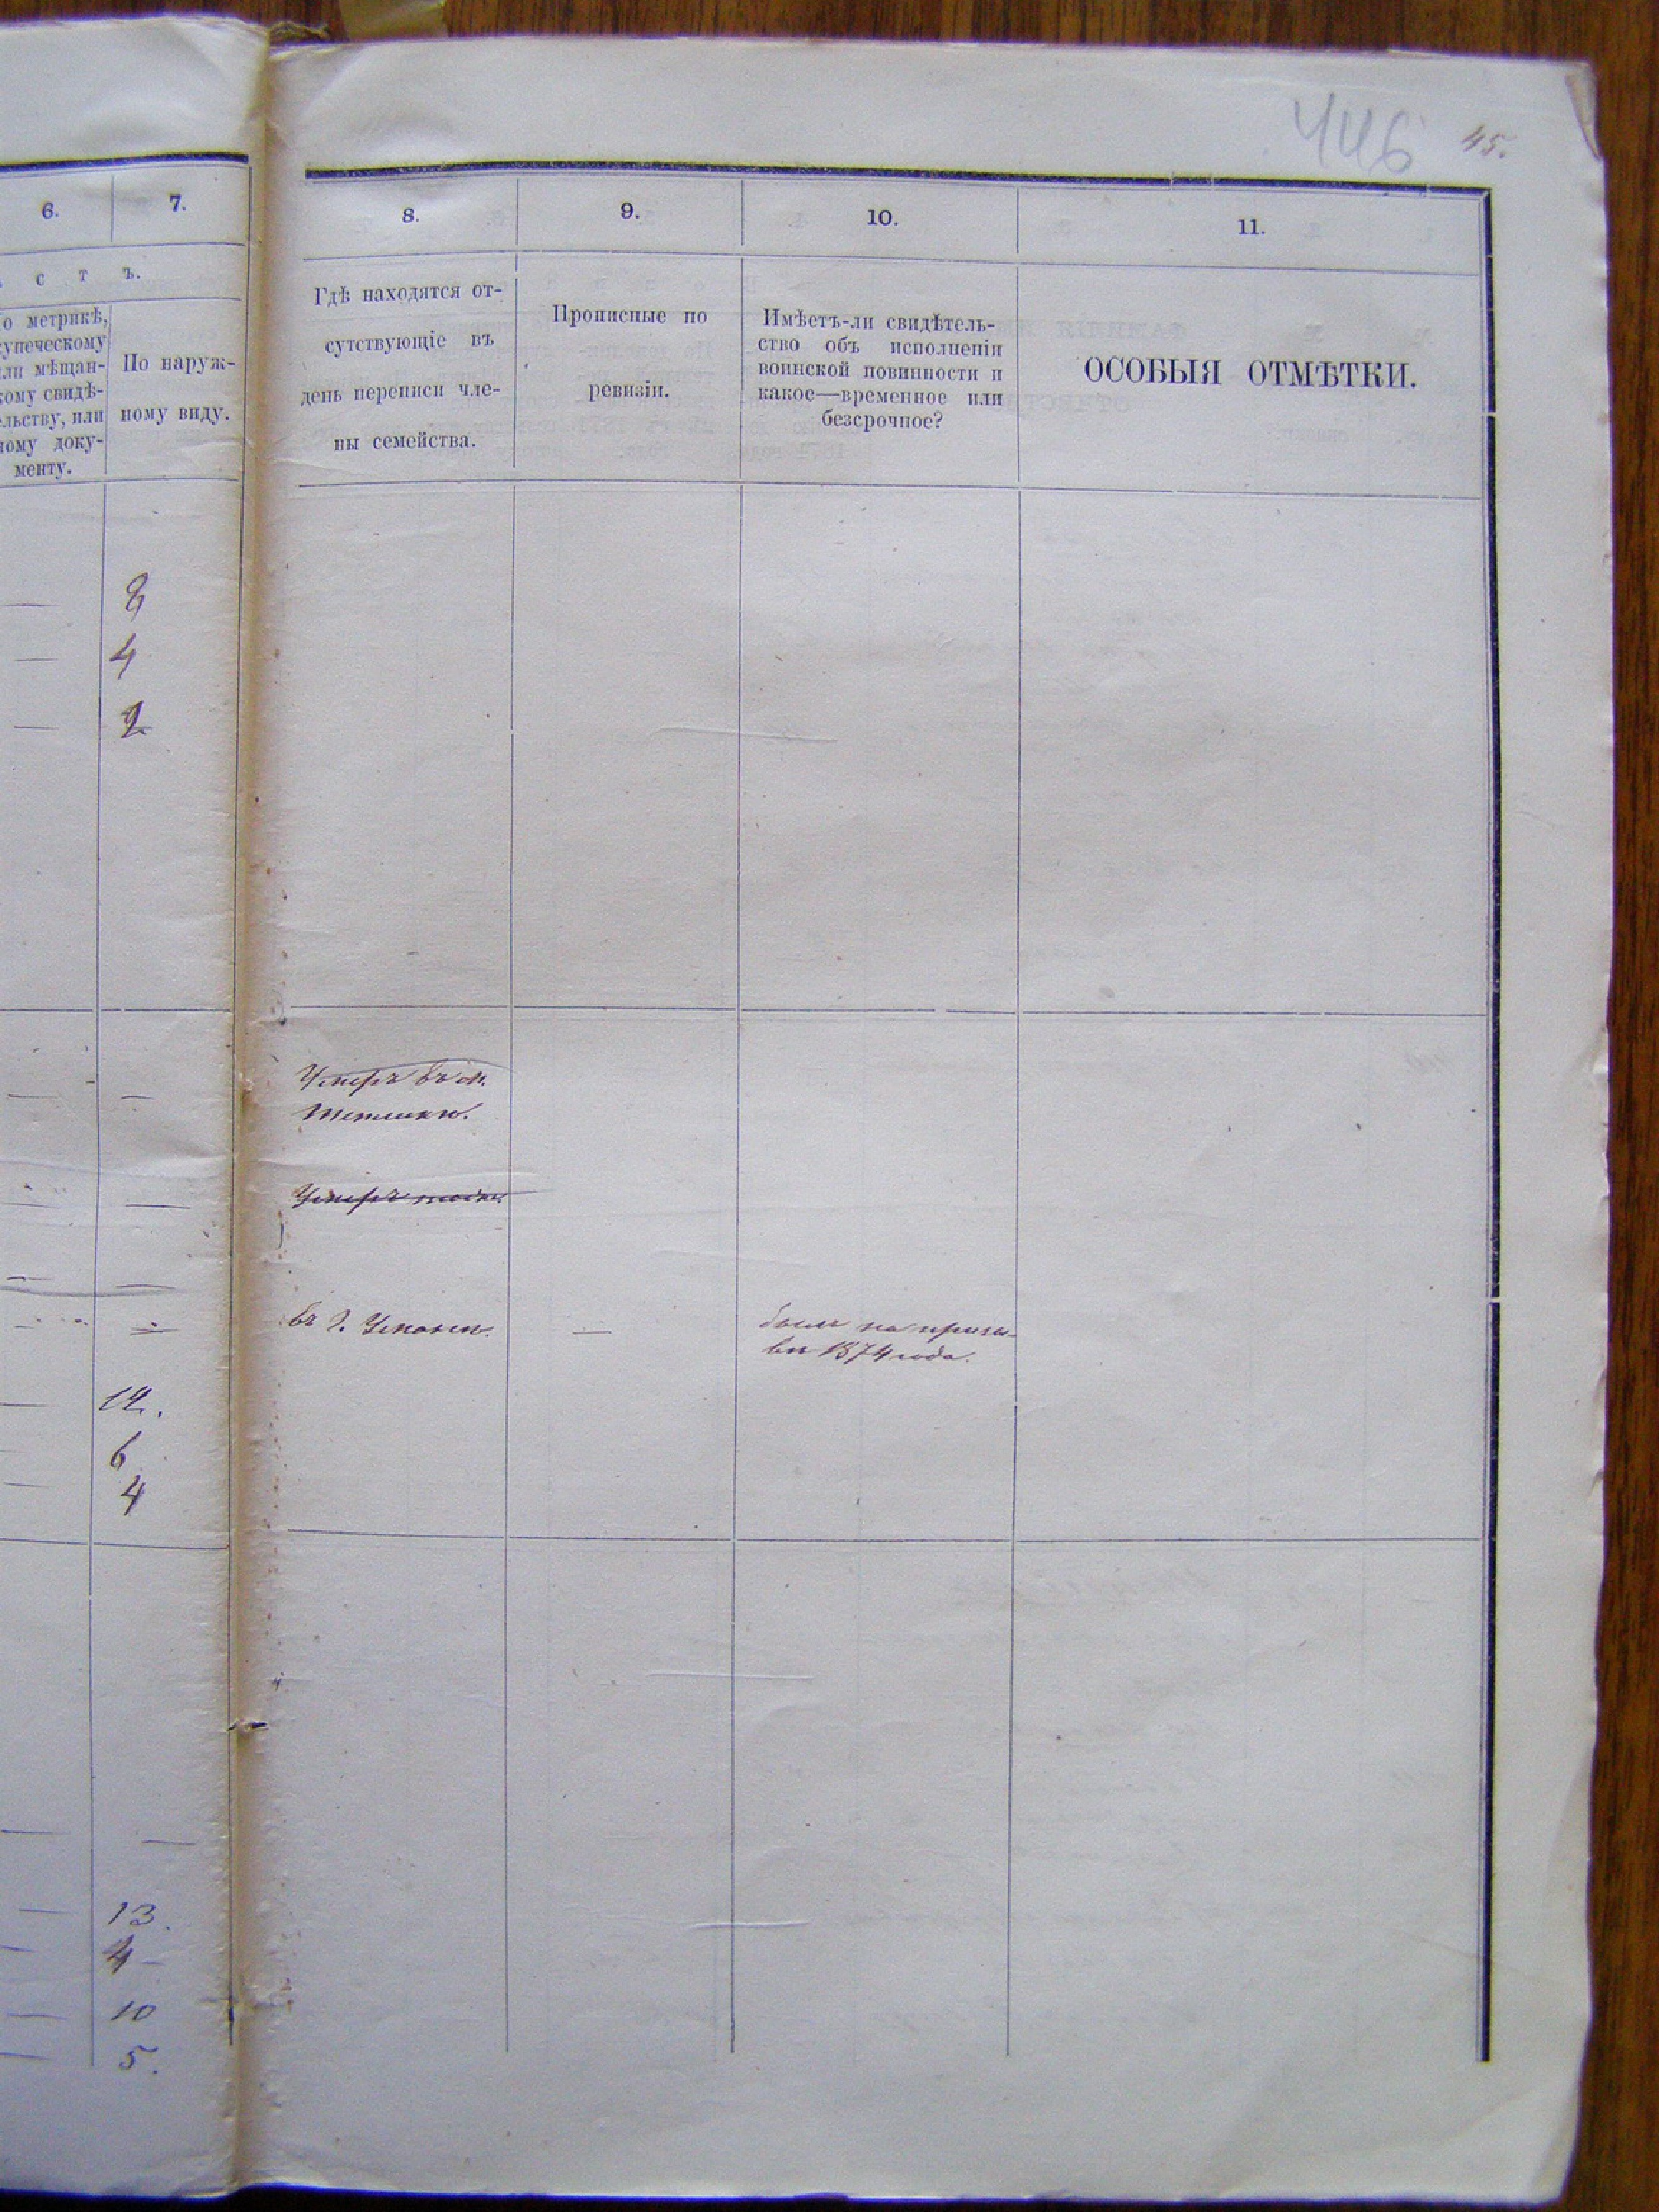 446 45.
6. 7.
с т ъ.
о метрикѣ,
упеческому
ли мѣщан-
кому свидѣ-
ельству, или
ному доку-
менту.
По наруж-
ному виду.
8. 9. 10. 11.
Гдѣ находятся от-
сутствующіе въ
день переписи чле-
ны семейства.
Прописные по
ревизіи.
Имѣетъ-ли свидѣтель-
ство объ исполненіи
воинской повинности и
какое—временное или
безсрочное?
ОСОБЫЯ ОТМѢТКИ.
— 
— 4
— 
Умеръ въ м.
— —
Умеръ
— —
— —
въ г. Умани. — былъ на призы-
вѣ 1874 года.
— 
— 6
— 4
— —
— 13.
— 4 —
— 10
— 5.